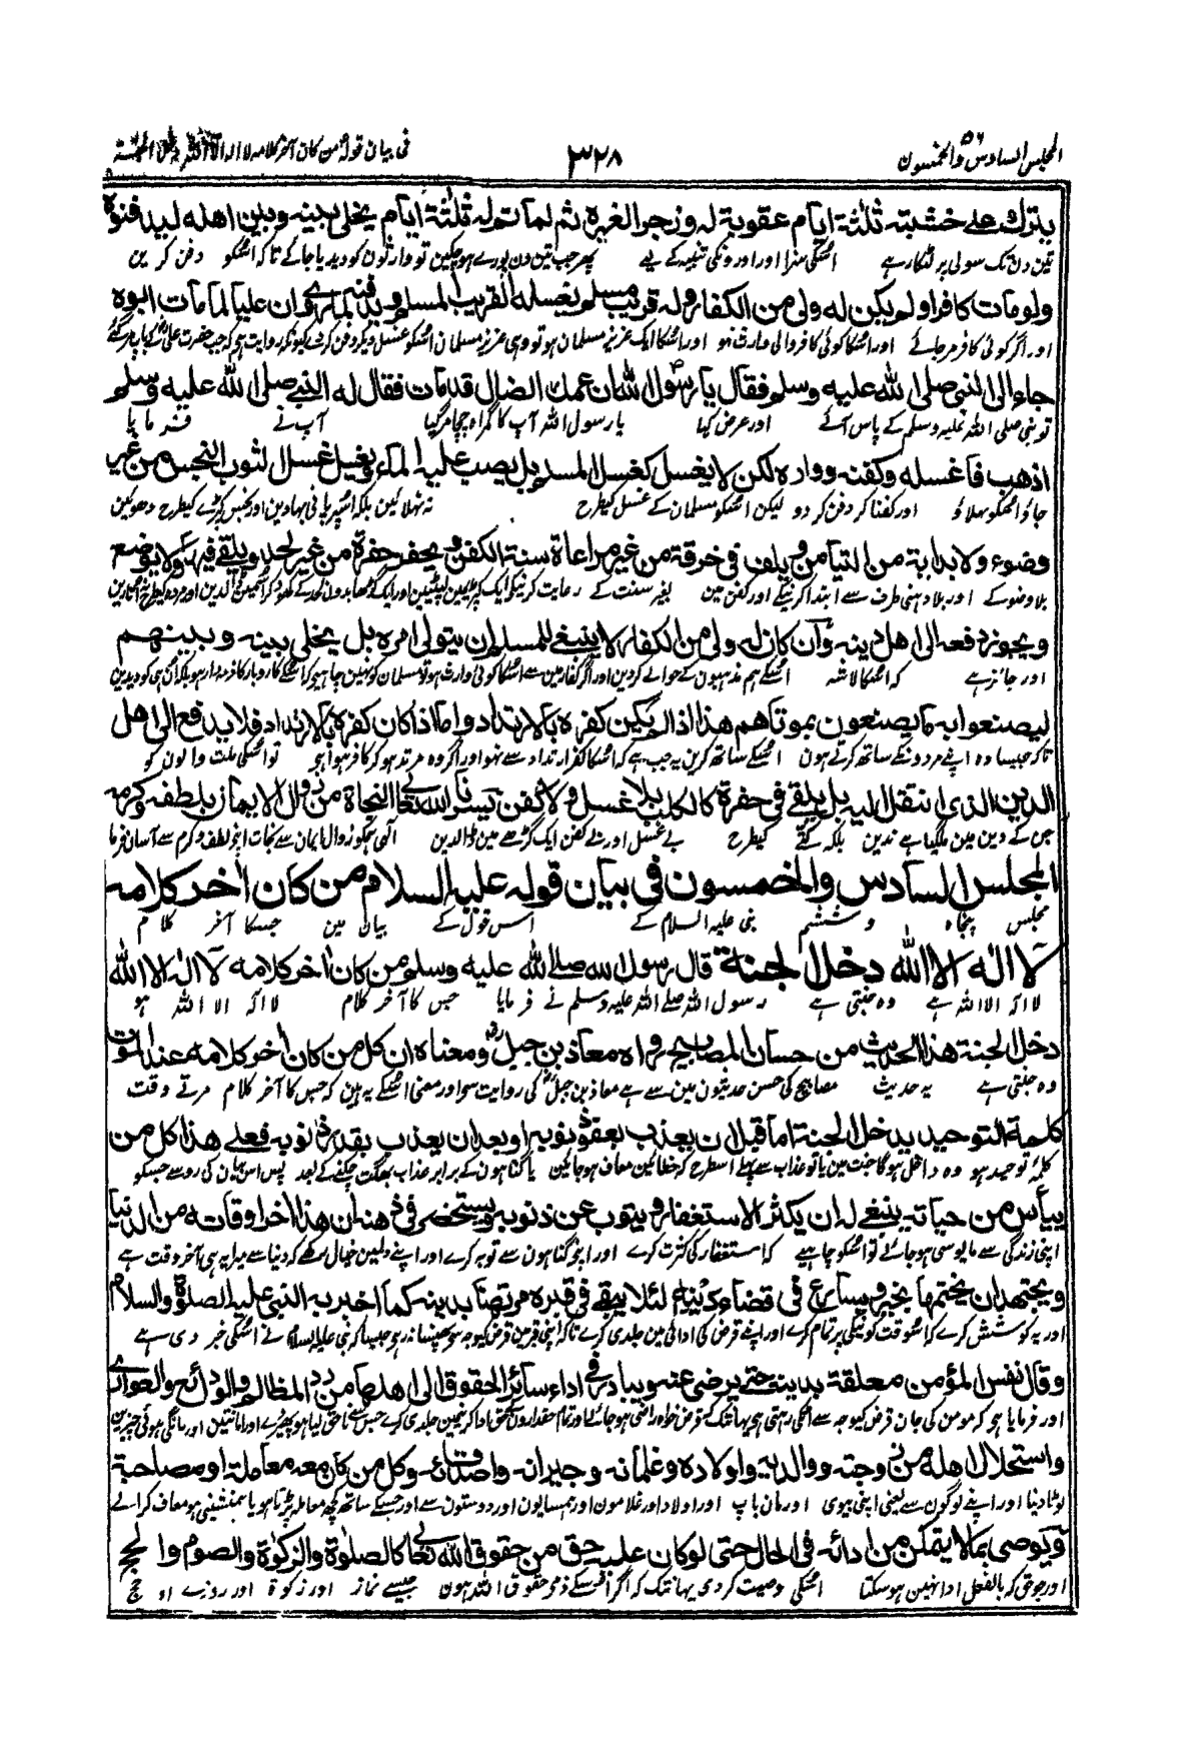 المجلس السادس والخمسون ۵۶
۳۲۸
فی بیان قولہ من کان آخر کلامہ لا الہ الا اللہ دخل الجنۃ
يترك على خشبته ثلثة ايام عقوبة له وزجرا لغيره ثم لما تم له ثلثة ايام يخلى بينه وبين اهله ليدفنوه
تین دن تک سولی پر لٹکا رہے اسکی سزا اور اورونکی تنبیہ کے لیے پھر جب تین دن پورے ہو چکین تو وارثون کو دیدیا جائے تاکہ اسکو دفن کرین
ولو مات كافر ولم يكن له ولى من الكفار وله قريب مسلم يغسله القريب المسلم ويدفنه لما روى ان عليا لما مات ابوه
اور اگر کوئی کافر مر جائے اور اسکا کوئی کافر والی وارث نہو اور اسکا ایک عزیز مسلمان ہو تو وہی عزیز مسلمان اسکو غسل دیکر دفن کر دے کیونکہ روایت ہو کہ جب حضرت علی کے باپ مر گئے
جاء الى النبى صلى الله عليه وسلم فقال يا رسول الله ان عمك الضال قد مات فقال له النبى صلى الله عليه وسلم
تو نبی صلی اللہ علیہ وسلم کے پاس آئے اور عرض کیا یا رسول اللہ آپ کا گمراہ چچا مر گیا آپ نے فرمایا
اذهب فاغسله وكفنه وواره لكن لا يغسل كغسل المسلم بل يصب عليه الماء ويغسل غسل الثوب النجس من غير
جاؤ اسکو نہلاؤ اور کفنا کر دفن کر دو لیکن اسکو مسلمان کے غسل کیطرح نہ نہلائین بلکہ اسپر پانی بہا دین اور نجس کپڑے کیطرح دھوئین
وضوء ولا بداية من التيامن ويلف فى خرقة من غير مراعاة سنة الكفن ويحفر حفرة من غير لحد ويلقى فيها ولا يوضع
بلا وضو کے اور بلا دہنی طرف سے ابتدا کرنیکے اور کفن مین بغیر سنت کے رعایت کرنیکے ایک کپڑیمین لپیٹین اور ایک گڑھا بدون لحد کے کھود کر اسمین ڈالدین
ويجوز دفعه الى اهل دينه وان كان له ولى من الكفار لا ينبغى للمسلم ان يتولى امره بل يخلى بينه وبينهم
اور جائز ہے کہ اسکا لاشہ اسکے ہم مذہبون کے حوالے کر دین اور اگر کفار مین سے اسکا کوئی وارث ہو تو مسلمان کو نہین چاہیے کہ اسکے کاروبار کا ذمہ دار ہو بلکہ ان ہی کو دیدین
ليصنعوا به ما يصنعون بموتاهم هذا اذا لم يكن كفره بالارتداد واما اذا كان كفره بالارتداد فلا يدفع الى اهل
تاکہ جیسا وہ اپنے مردونکے ساتھ کرتے ہون اسکے ساتھ کرین یہ جب ہے کہ اسکا کفر ارتداد سے نہو اور اگر وہ مرتد ہو کر کافر ہوا ہو تو اسکی ملت والون کو
الدين الذى انتقل اليه بل يلقى فى حفرة كالكلب بلا غسل ولا كفن يسرنا الله تعالى النجاة من زوال الايمان بلطفه وكرمه
جن کے دین مین ملگیا ہے ندین بلکہ کتے کیطرح بے غسل اور بے کفن ایک گڑھے مین ڈالدین الہی ہمکو زوال ایمان سے نجات اپنے لطف و کرم سے آسان فرما
المجلس السادس والخمسون فى بيان قوله عليه السلام من كان آخر كلامه
مجلس پنجاہ و ششم نبی علیہ السلام کے اس قول کے بیان مین جسکا آخر کلام
لا اله الا الله دخل الجنة قال رسول الله صلى الله عليه وسلم من كان آخر كلامه لا اله الا الله
لا الہ الا اللہ ہے وہ جنتی ہے رسول اللہ صلے اللہ علیہ وسلم نے فرمایا جس کا آخر کلام لا الہ الا اللہ ہو
دخل الجنة هذا الحديث من حسان المصابيح رواه معاذ بن جبل ومعناه ان كل من كان آخر كلامه عند الموت
وہ جنتی ہے یہ حدیث مصابیح کی حسن حدیثون مین سے ہے معاذ بن جبل کی روایت سے اور معنی اسکے یہ ہین کہ جس کا آخر کلام مرتے وقت
كلمة التوحيد يدخل الجنة اما قبل ان يعذب بعفو ذنوبه او بعد ان يعذب بقدر ذنوبه فعلى هذا كل من
کلمۂ توحید ہو وہ داخل ہوگا جنت مین یا تو عذاب سے پہلے اسطرح کہ خطائین معاف ہو جائین یا گناہون کے برابر عذاب بھگت چکنے کے بعد پس اس بیان کی رو سے جسکو
ييأس من حياته ينبغى له ان يكثر الاستغفار ويتوب عن ذنوبه ويستحضر فى ذهنه ان هذا آخر اوقاته من الدنيا
اپنی زندگی سے مایوسی ہو جائے تو اسکو چاہیے کہ استغفار کی کثرت کرے اور اپنے گناہون سے توبہ کرے اور اپنے دلمین خیال رکھے کہ دنیا سے میرا یہ ہی آخر وقت ہے
ويجتهد ان يختمها بخير ويسارع فى قضاء ديونه لئلا يبقى فى قبره مرتهنا بدينه كما اخبر به النبى عليه الصلوة والسلام
اور یہ کوشش کرے کہ اسوقت کو نیکی پر تمام کرے اور اپنے قرض کی ادائی مین جلدی کرے تاکہ اپنی قبر مین قرض کیوجہ سے پھنسا نہ رہے جیسا کہ نبی علیہ السلام نے اسکی خبر دی ہے
وقال نفس المؤمن معلقة بدينه حتى يرضى عنه ويبادر فى اداء سائر الحقوق الى اهلها من رد المظالم والودائع والعوارى
اور فرمایا ہو کہ مومن کی جان قرض کیوجہ سے اٹکی رہتی ہو یہانتک کہ قرض خواہ راضی ہو جائے اور تمام حقدارون کے حق ادا کرنیمین جلدی کرے جس سے ناحق لیا ہو پھیر دے اور امانتین اور مانگی ہوئی چیزین
واستحلال اهله من زوجته ووالديه واولاده وغلمانه وجيرانه واصدقائه وكل من كان معه معاملة او مصاحبة
لوٹا دینا اور اپنے لوگون سے یعنی اپنی بیوی اور مان باپ اور اولاد اور غلامون اور ہمسایون اور دوستون سے اور جسکے ساتھ کچھ معاملہ پڑتا ہو یا ہمنشینی ہو معاف کرا لے
ويوصى بما لا يتمكن من ادائه فى الحال حتى لو كان عليه حق من حقوق الله تعالى كالصلوة والزكوة والصوم والحج
اور جو حق کہ بالفعل ادا نہین ہو سکتا اسکی وصیت کر دی یہانتک کہ اگر اسکے ذمی حقوق اللہ ہون جیسے نماز اور زکوۃ اور روزے اور حج